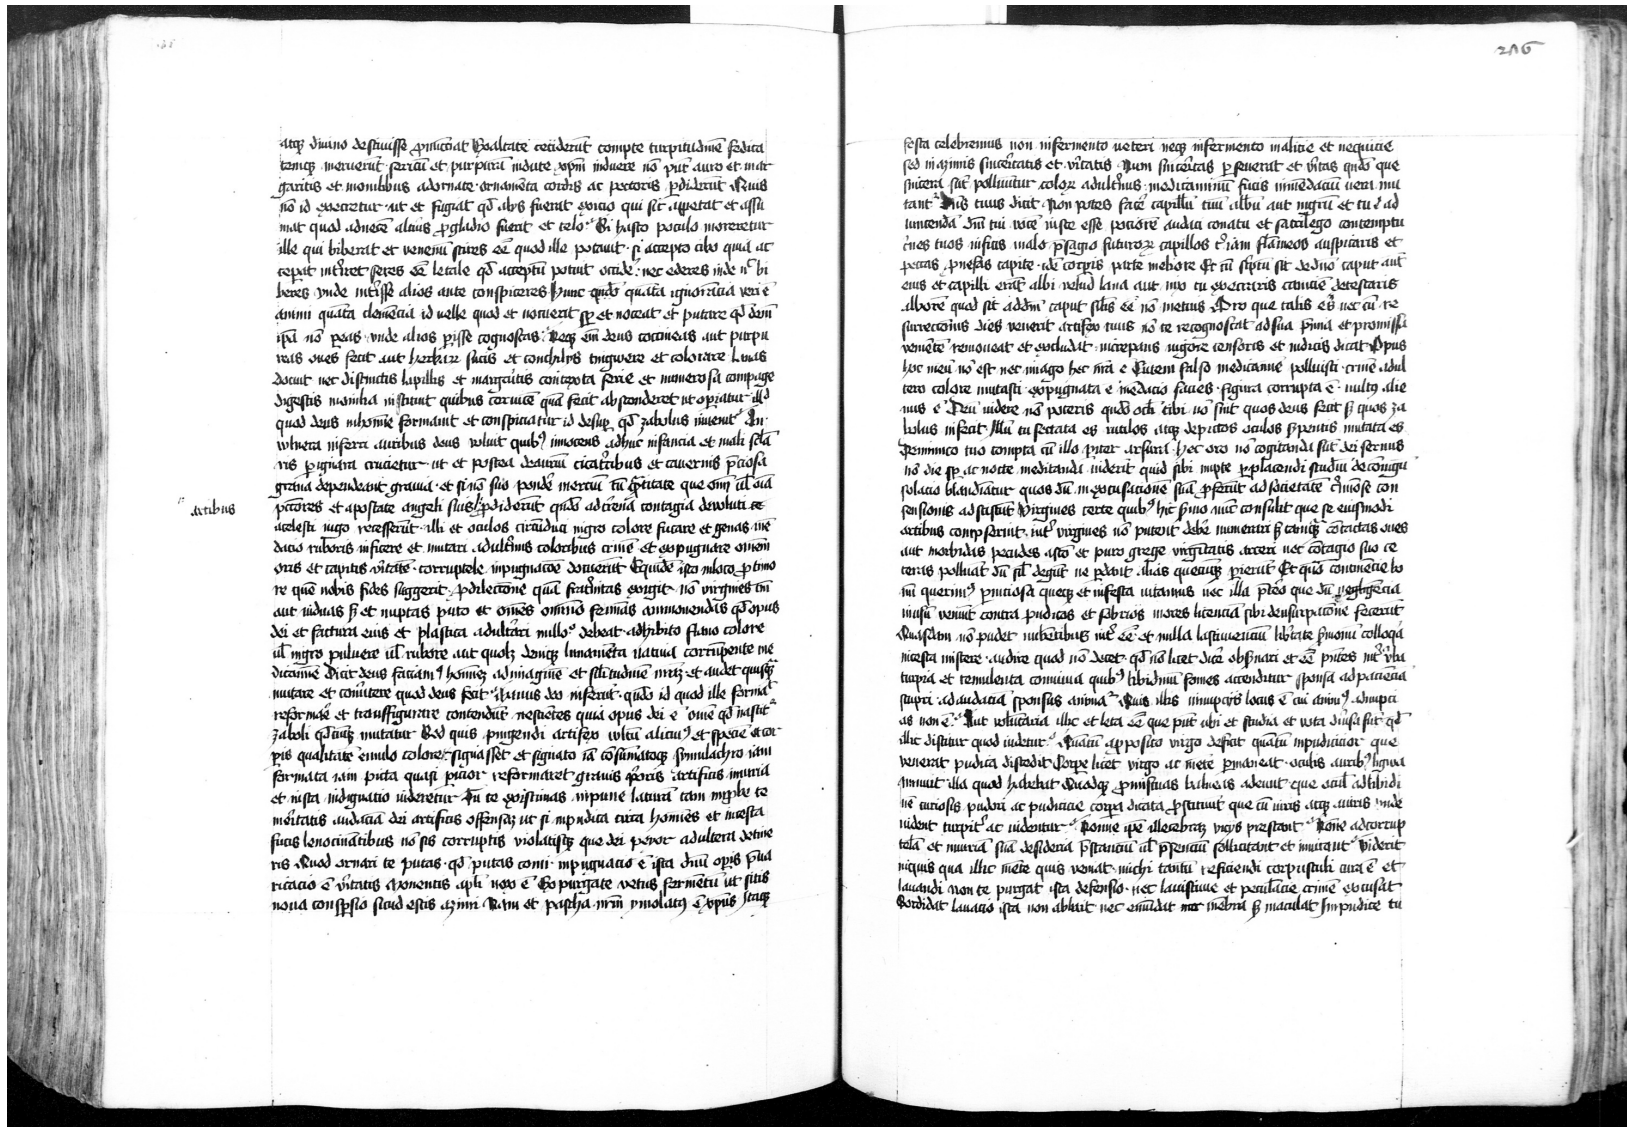 atqꝫ diuino desciuisse ꝓnūciat Exaltate ceciderūt compte turpitudinē fedita
temqꝫ meruerūt · sericū et purpurā indute xp̄m induere nō pn̄t auro et mar
garitis et monilibus adornate · ornamēta cordis ac pectoris ꝑdiderūt Quis
nō id execretur · ut et fugiat qd̄ alijs fuerat exicio qui sit appetat et assu
mat quod ad necē alcius ꝓ gladio fuerit et telo · Si hasto poculo moreretur
ille qui biberat et venenū scires eē quod ille potauit · si accepto cibo quia ac
ceperat int̄iret scires eē letale qd̄ acceptū potuit occid̄e · nec ederes inde nˡ bi
beres · unde int̄isse alios ante conspiceres Nunc quād quāta ignorācia veri ē
animi quāta demēcia id velle quod et nocuerit sꝑ et noceat et putare qd̄ den̄
ip̄a nō pereas · unde alios perisse cognoscas · Neqꝫ em̄ deus coccineas aut purpu
reas oues fecit aut herbaꝝ sucis et conchilijs tinguere et colorare lanas
docuit nec distinctis lapillis et margaritis contexta serie et numerosa compage
digestis monilia instituit quibus ceruicē quā fecit absconderet ut operiatur illd̄
quod deus in homīe formauit et conspiciatur id desuꝑ qd̄ zabolus inuenit An
vulnera inferri auribus deus voluit quibꝰ innocens adhuc infancia et mali sc̄la
ris ꝑ ignara crucietur · ut et postea de auriū cicat̄cibus et cauernis p̄ciosa
grana dependeant grauia · et si nō suo pond̄e merciū tn̄ q̄titate que om̄ia
pctores et apostate angeli suis ꝓdiderūt quād ad t̄rena contagia deuoluti ce
a celesti uigo recesserūt · illi et oculos circūducti nigro colore fucare et genas mē
dacio ruboris inficere et mutari adult̄inis coloribus crinē et expugnare omnem
oris et capitis v̄itatē · corruptele impugnacōe docuerūt Equidē isto in loco ꝓ timo
re quē nobis fides suggerit · ꝓ dilectione quā frat̄nitas exigit · nō virgines tm̄
aut uiduas sꝫ et nuptas puto et omnes omnino feminas ammonendas qd̄ opus
dei et factura eius et plastica adult̄ari nullo · debeat · adhibito flauo colore
ul̄ nigro puluere ul̄ rubore aut quolꝫ deniqꝫ linamēta natiua corrūpente me
dicamine Dicit deus faciamꝰ hominē ad imaginē et sil̄itudinē nr̄aꝫ et audet quisqȝ
mutare et conu̇tere quod deus fecit · Manus deo inferūt · quād id quod ille format
reformare et transfigurare contendūt · nescientes quia opus dei ē om̄e qd̄ nascit̄
zaboli qd̄cūqꝫ mutatur Sed quis pingendi artifex vultū alicuiꝰ et speciē et cor
pis qualitatē emulo colore signasset et signato iā cōsūmatoqꝫ symulachro iam
formata iam picta quasi picior reformaret grauis p̄oris artificis iniuria
et iusta indignatio uideretur Tu te existimas inpune laturā tam inprobe te
meritatis audaciā dei artificis offensaꝫ ut si inpudica circa homines et incesta
fucis lenocināctibus nō sis corruptis violatisqꝫ que dei peior adultera detine
ris Quod ornari te putas · qd̄ putas comi · inpugnacio ē ista diuī opis p̄ua
ricacio ē v̄itatis Monentis apl̄i vox ē Expurgate vetus fermētū ut sitis
noua conspersio sicud estis azimi Nam et pascha nr̄m ymolatꝰ ē xp̄us Itaqꝫ
artibus
206
festa celebremus non in fermento ueteri neqꝫ in fermento malicie et nequicie
sed in azimis sinceritatis et v̄itatis · Num sinceritas perseuerat et v̄itas quād que
sincera sūt polluūtur coloꝝ adult̄inis medicaminū fucis in mēdaciū uera mu
tant̄ Dn̄s tuus dicit Non potes facē capillū tuū albū aut nigrū et tu ad
uincendā dn̄i tui vocē iuste esse pociorē audaci conatu et sacrilego contemptu
c̄nes tuos inficis malo p̄sagio futuroꝝ capillos t̄ iam flameos auspicaris et
peccas ꝓ nefas capite · idē corpis parte meliore Et cū sc̄ptū sit de dn̄o caput aut̄
eius et capilli erāt albi velud lana aut nix tu execraris caniciē detestaris
alborē quod sit ad dn̄i caput sil̄is eē nō metuis Oro que talis es nec cū re
surrectionis dies venerit artifex tuus nō te recognoscat ad sua p̄mia et promissa
veniētē remoueat et excludat · increpans uigore censoris et iudicis dicat Opus
hoc meū nō est nec imago hec nr̄a ē Cutem falso medicamine polluisti · crinē adul
tero colore mutasti expugnata ē mēdacio facies · figura corrupta ē · vultꝰ alie
nus ē Deū uidere nō poteris quād oc̄li tibi nō sint quos deus fecit sꝫ quos za
bolus infecit Illū tu sectata es rutilos atqꝫ depictos oculos ſerpentis mutata es
De inimico tuo compta cū illo pariter arsura · Hec oro nō cogitanda sūt dei seruis
nō die sꝑ ac nocte meditanda · uiderit quid sibi nupte ꝑ placendi studiū de coniugū
solacio blandiātur quos dū in excusacionē suā ꝓferūt ad societatē c̄minose con
sensionis adsciscūt Virgines certe quibꝰ hic s̄mo nūc consulit que se eiusmodi
artibus conpserint · int̄ virgines nō puterit debē numerari sꝫ tamqȝ cōtactas oues
aut morbidas pecudes a sctō et puro grege virginitatis arceri nec cōtagio suo ce
teras polluāt dū sil̄ degūt ne perdant alias quecūqꝫ perierūt Et quō continēcie bo
nū querimꝰ perniciosa queqꝫ et infesta uitamus nec illa p̄teo que dū negligēcia
in usū veniūt contra pudicos et sobrios mores licenciā sibi de usurpacione fecerūt
Quasdam nō pudet nubentibus int̄ eē · et in illa lasciuienciū lib̄tate s̄monū colloq̄a
incesta miscere · audire quod nō decet · qd̄ nō licet dicē obs̄uari et eē pn̄tes int̄ v̄ba
turpia et temulenta conuiuia quibꝰ libidinū fomes accenditur sponsa ad paciēcia
stupri · ad audaciā sponsus animat̄ Quis illis in nupcijs locus ē cui animꝰ ad nupti
as non ē Aut voluntaria illic et leta eē que pn̄t ubi et studia et vota diu̇sa sūt qd̄
illic discitur quod uidetur Quātū apposito virgo deficit quātū inpudicior que
venerat pudica discedit Corpe licet virgo ac mente ꝑmaneat · oculis auribꝰ ligwa
minuit illa quod habebat Quodqꝫ ꝓmiscuas balneas adeunt · que ocul̄ ad libidi
nē curiosis pudori ac pudicicie corpa dicata ꝓstituūt que cū viros atqꝫ a uiris inde
uident turpit̄ ac uidentur Nonne ip̄e illecebraꝫ vicijs prestant Nōne ad corrup
telā et iniuriā suā desideria p̄stanciū ul̄ p̄senciū sollicitant et inuitant Viderit
inquis qua illuc mēte quis veniat · michi tantū reficiendi corpusculi cura ē et
lauandi Non te purgat ista defensio · nec lasciuie et petulācie crimē excusat
Sordidat lauacio ista non abluit nec emūdat mēbra sꝫ maculat Inpudice tu